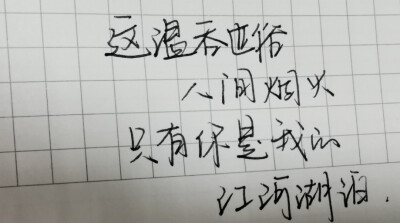 这温吞世俗
人间烟火
只有你是我的
江河湖泊.